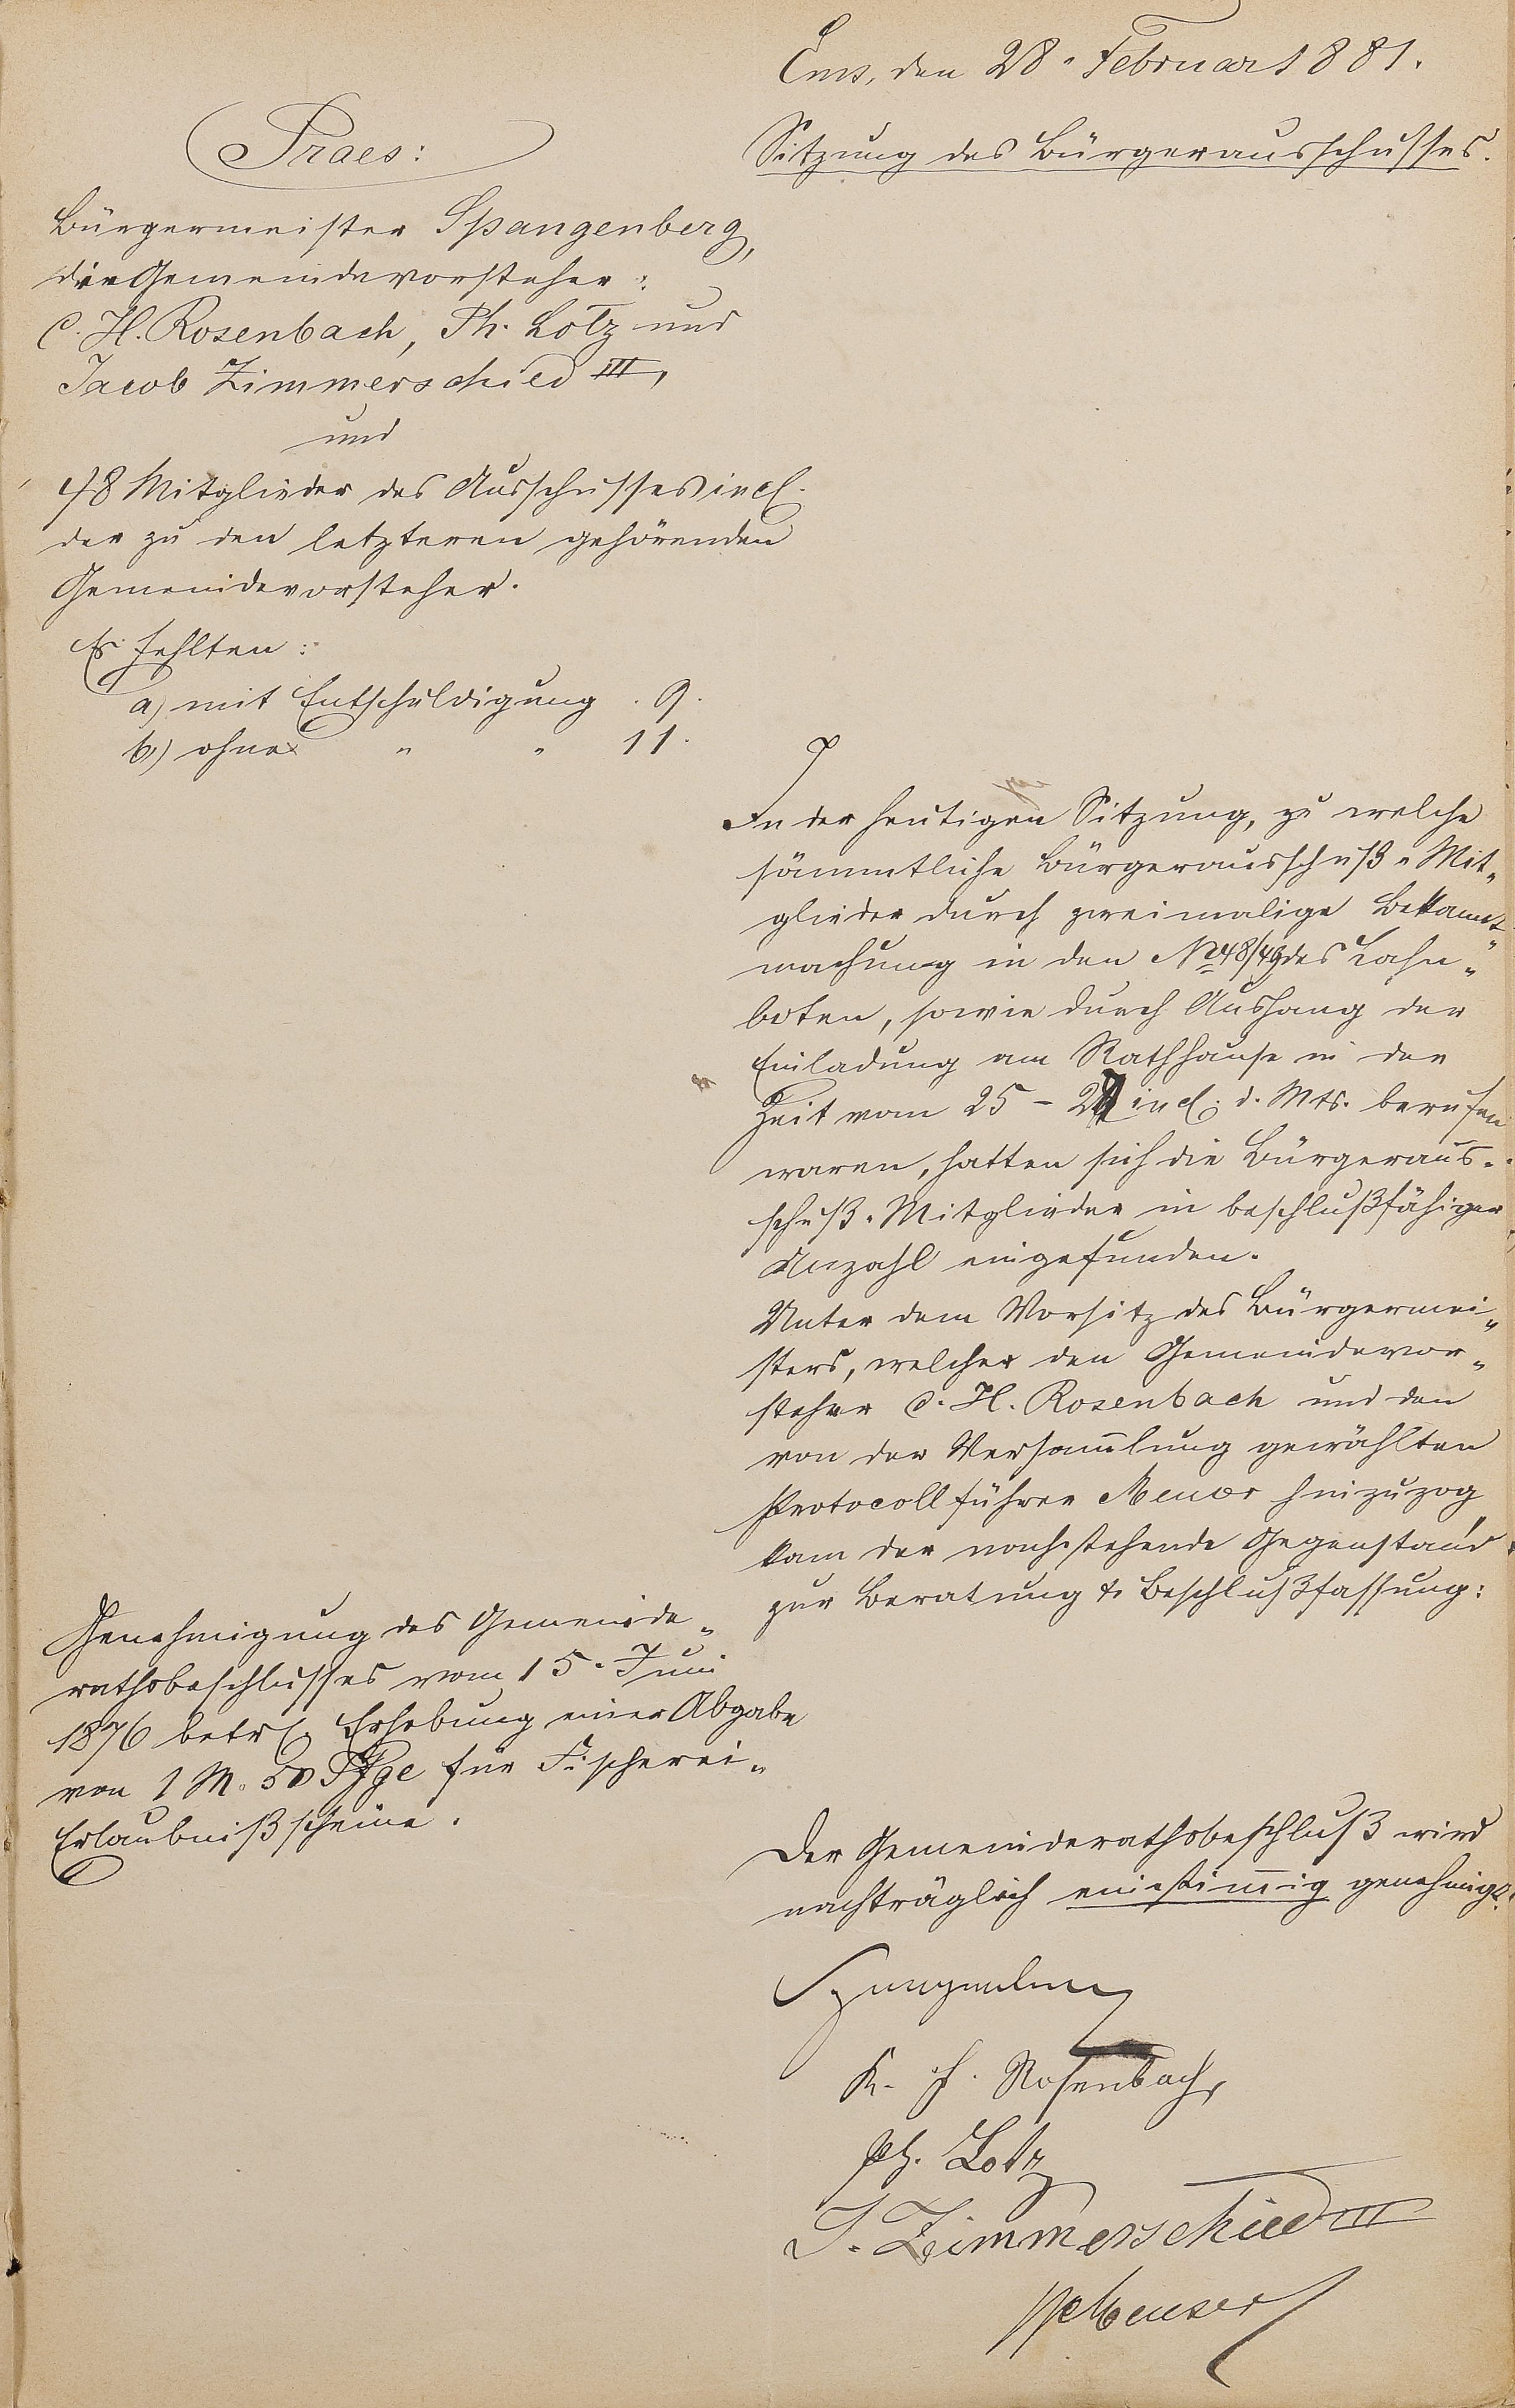 Ems, den 28. Februar 1881.
Sitzung des Bürgerausschusses.
Praes:
Bürgermeister Spangenberg,
die Gemeindevorsteher:
C. H. Rosenbach, Ph. Lotz und
Jacob Zimmerschied III,
und
48 Mitglieder des Ausschusses incl.
der zu den letzteren gehörenden
Gemeindevorsteher.
Es fehlten:
a) mit Entschuldigung . 9.
b) ohne " " 11.
In der heutigen Sitzung, zu welche
sämmtliche Bürgerausschuß-Mit-
glieder durch zweimalige Bekannt-
machung in den No 48/49 des Lahn-
boten, sowie durch Aushang der
Einladung am Rathhause in der
Zeit vom 25 - incl. d. Mts. berufen
waren, hatten sich die Bürgeraus-
schuß-Mitglieder in beschlußfähiger
Anzahl eingefunden.
Unter dem Vorsitz des Bürgermei-
sters, welcher den Gemeindevor-
steher C. H. Rosenbach und den
von der Versam̅lung gewählten
Protocollführer hinzuzog,
kam der nachstehende Gegenstand
zur Beratung & Beschlußfassung:
Genehmigung des Gemeinde-
rathsbeschlusses vom 15. Juni
1876 betr. Erhebung einer Abgabe
von 1 M. 50 Pfge für Fischerei-
Erlaubnißscheine.
Der Gemeinderathsbeschluß wird
nachträglich einstim̅ig genehmigt.
Spangenberg
K. H. Rosenbach,
Ph. Lotz
J. Zimmerschied III